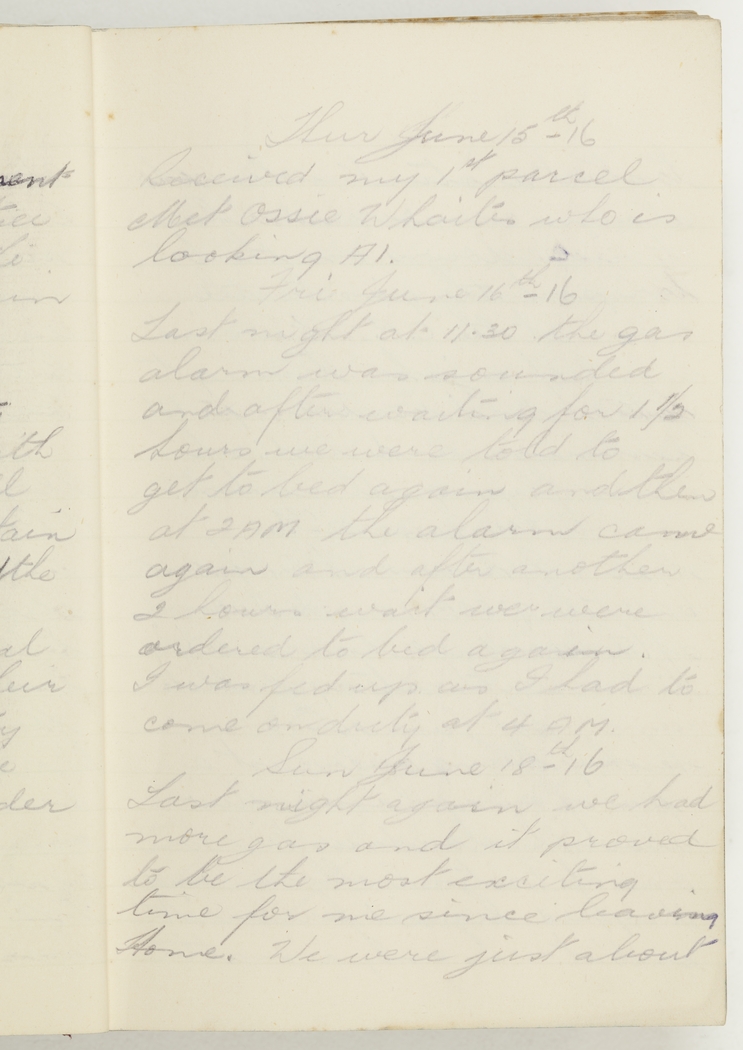 Thur June 15th-16
Received my 1st parcel
Met Ossie Whaites who is
looking A1.
Fri June 16th-16
Last night at 11.30 the gas
alarm was sounded
and after waiting for 1 1/2
hours we were told to
get to bed again and then
at 2 AM the alarm came
again and after another
2 hours wait we were
ordered to bed again.
I was fed up as I had to
come on duty at 4 AM.
Sun June 18th-16
Last night again we had
more gas and it proved
to be the most exciting
time for me since leaving
Home. We were just about